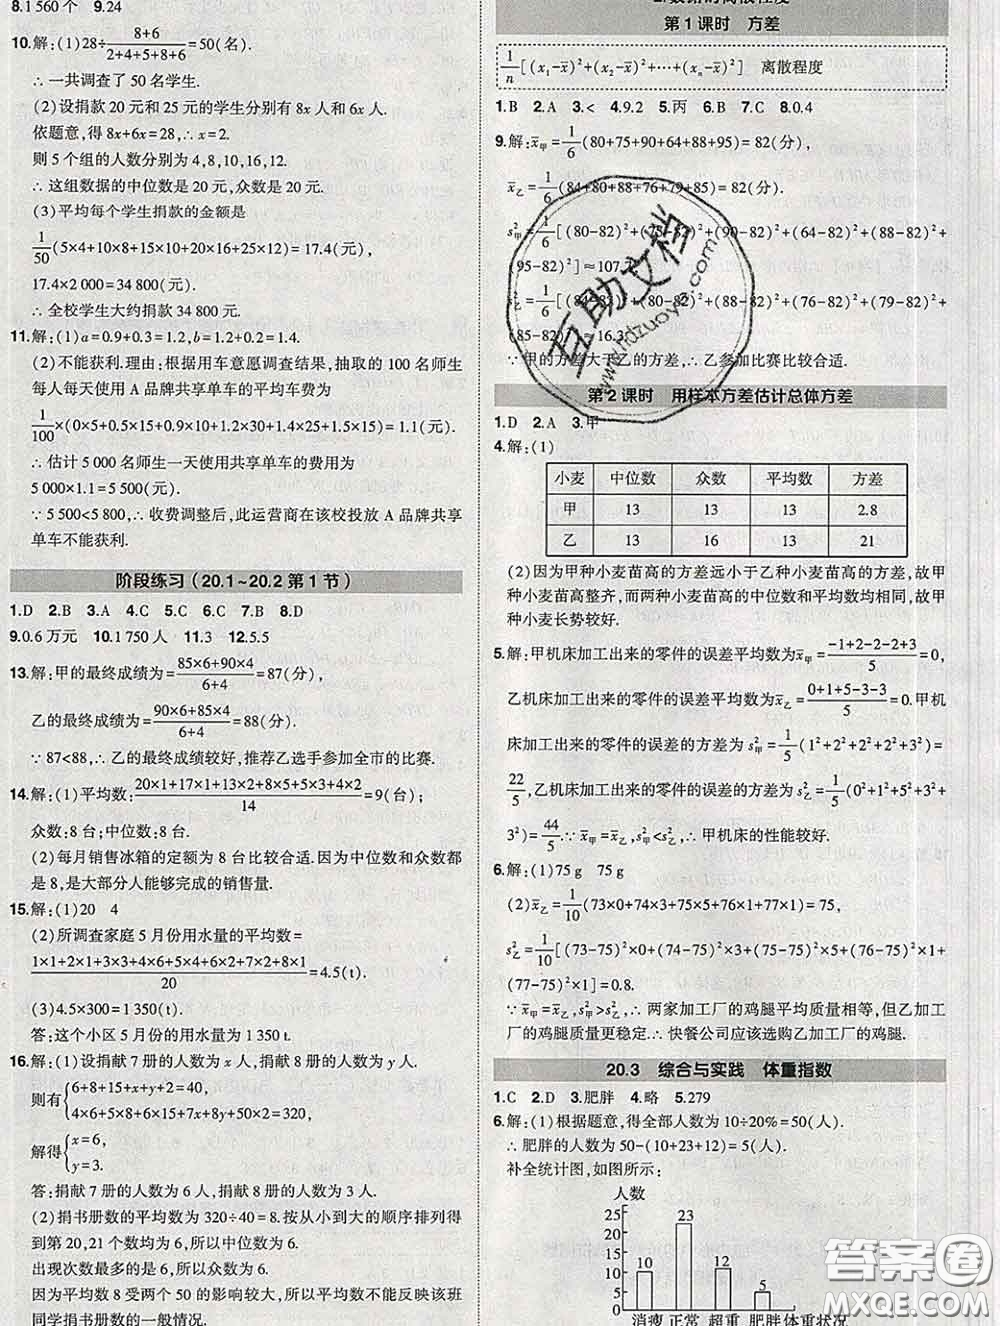 8.1 560 个 9.24
10.解:(1)28÷(8+6)/(2+4+5+8+6)=50(名).
∴ 一共调查了 50 名学生.
(2)设捐款 20 元和 25 元的学生分别有 8x 人和 6x 人.
依题意,得 8x+6x=28,∴ x=2.
则 5 个组的人数分别为 4,8,10,16,12.
∴ 这组数据的中位数是 20 元,众数是 20 元.
(3)平均每个学生捐款的金额是
1/50(5×4+10×8+15×10+20×16+25×12)=17.4(元),
17.4×2 000=34 800(元).
∴ 全校学生大约捐款 34 800 元.
11.解:(1)a=0.9+0.3=1.2,b=1.2+0.2=1.4.
(2)不能获利.理由:根据用车意愿调查结果,抽取的 100 名师生
每人每天使用 A 品牌共享单车的平均车费为
1/100×(0×5+0.5×15+0.9×10+1.2×30+1.4×25+1.5×15)=1.1(元).
∴ 估计 5 000 名师生一天使用共享单车的费用为
5 000×1.1=5 500(元).
∵ 5 500<5 800,∴ 收费调整后,此运营商在该校投放 A 品牌共享
单车不能获利.
阶段练习(20.1~20.2 第 1 节)
1.D 2.B 3.A 4.C 5.C 6.D 7.B 8.D
9.0.6 万元 10.1 750 人 11.3 12.5.5
13.解:甲的最终成绩为=(85×6+90×4)/(6+4)=87(分),
乙的最终成绩为=(90×6+85×4)/(6+4)=88(分).
∵ 87<88,∴ 乙的最终成绩较好,推荐乙选手参加全市的比赛.
14.解:(1)平均数:(20×1+17×1+13×2+8×5+5×3+4×2)/14=9(台);
众数:8 台;中位数:8 台.
(2)每月销售冰箱的定额为 8 台比较合适.因为中位数和众数都
是 8,是大部分人能够完成的销售量.
15.解:(1)20 4
(2)所调查家庭 5 月份用水量的平均数=
(1×1+2×1+3×3+4×6+5×4+6×2+7×2+8×1)/20=4.5(t).
(3)4.5×300=1 350(t).
答:这个小区 5 月份的用水量为 1 350 t.
16.解:(1)设捐献 7 册的人数为 x 人,捐献 8 册的人数为 y 人.
则有{6+8+15+x+y+2=40,
4×6+5×8+6×15+7x+8y+2×50=320.
解得{x=6,
y=3.
答:捐献 7 册的人数为 6 人,捐献 8 册的人数为 3 人.
(2)捐书册数的平均数为 320÷40=8.按从小到大的顺序排列得
到第 20,21 个数均为 6,所以中位数为 6.
出现次数最多的是 6,所以众数为 6.
因为平均数 8 受两个 50 的影响较大,所以平均数不能反映该班
同学捐书册数的一般情况.
第 1 课时 方差
1/n[(x₁-x̄)²+(x₂-x̄)²+⋯+(xₙ-x̄)²] 离散程度
1.B 2.A 3.< 4.9.2 5.丙 6.B 7.C 8.0.4
9.解:x̄甲=1/6(80+75+90+64+88+95)=82(分),
x̄乙=1/6(84+80+88+76+79+85)=82(分).
s²甲=1/6[(80-82)²+(75-82)²+(90-82)²+(64-82)²+(88-82)²+
(95-82)²]≈107.7,
s²乙=1/6[(84-82)²+(80-82)²+(88-82)²+(76-82)²+(79-82)²+
(85-82)²]≈16.3.
∵ 甲的方差大于乙的方差,∴ 乙参加比赛比较合适.
第 2 课时 用样本方差估计总体方差
1.D 2.A 3.甲
4.解:(1)
小麦 中位数 众数 平均数 方差
甲 13 13 13 2.8
乙 13 16 13 21
(2)因为甲种小麦苗高的方差远小于乙种小麦苗高的方差,故甲
种小麦苗高整齐,而两种小麦苗高的中位数和平均数均相同,故甲
种小麦长势较好.
5.解:甲机床加工出来的零件的误差平均数为 x̄甲=(-1+2-2-2+3)/5=0,
乙机床加工出来的零件的误差平均数为 x̄乙=(0+1+5-3-3)/5=0.甲机
床加工出来的零件的误差的方差为 s²甲=1/5(1²+2²+2²+2²+3²)=
22/5,乙机床加工出来的零件的误差的方差为 s²乙=1/5(0²+1²+5²+3²+
3²)=44/5.∵ x̄甲=x̄乙,s²甲<s²乙,∴ 甲机床的性能较好.
6.解:(1)75 g 75 g
(2)x̄乙=1/10(73×0+74×3+75×5+76×1+77×1)=75,
s²乙=1/10[(73-75)²×0+(74-75)²×3+(75-75)²×5+(76-75)²×1+
(77-75)²×1]=0.8.
∵ x̄甲=x̄乙,s²甲>s²乙,∴ 两家加工厂的鸡腿平均质量相等,但乙加工
厂的鸡腿质量更稳定.∴ 快餐公司应该选购乙加工厂的鸡腿.
20.3 综合与实践 体重指数
1.C 2.D 3.肥胖 4.略 5.279
6.解:(1)根据题意,得全部人数为 10÷20%=50(人).
∴ 肥胖的人数为 50-(10+23+12)=5(人).
补全统计图,如图所示:
人数
25
20
15
10
5
0
10 23 12 5
消瘦 正常 超重 肥胖 体重状况
互助文档
www.hdzuoye.com
答案圈
MXQE.COM